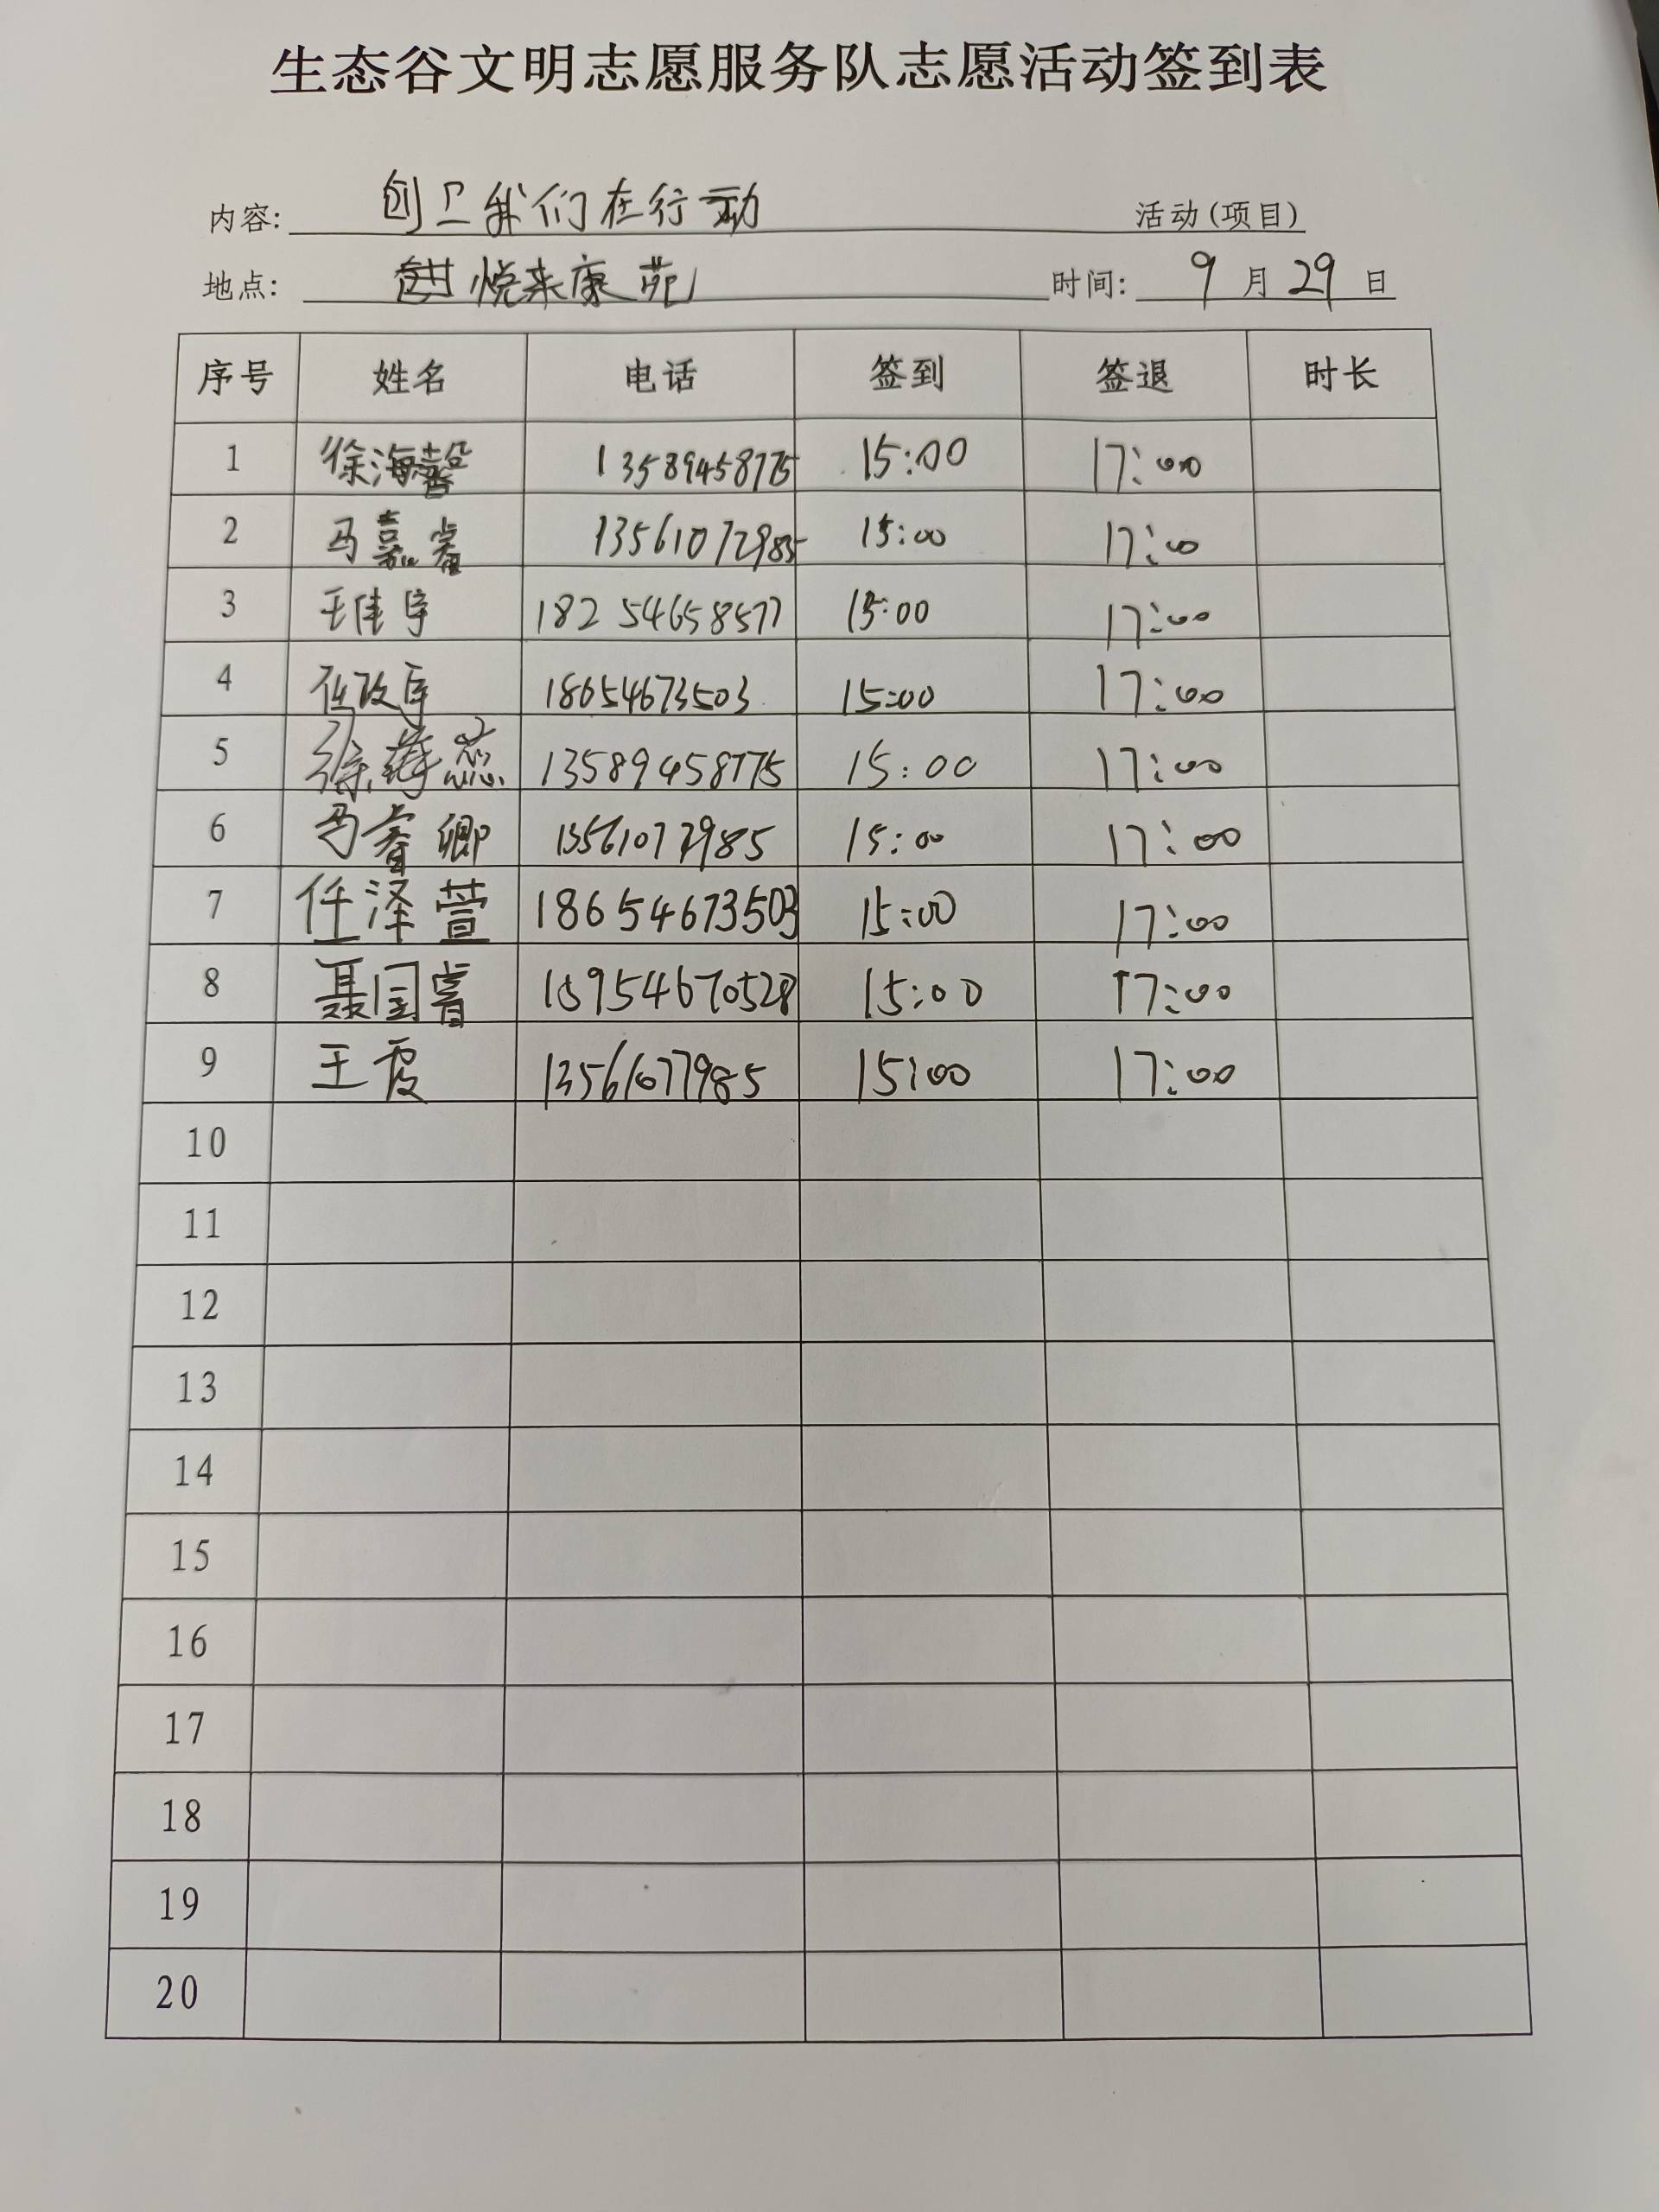 生态谷文明志愿服务队志愿活动签到表
内容: 创卫我们在行动 活动(项目)
地点: 悦来康苑 时间: 9月29日
序号 姓名 电话 签到 签退 时长
1 徐海馨 13589458775 15:00 17:00
2 马嘉睿 13561072985 15:00 17:00
3 王佳宇 18254658577 15:00 17:00
4 18654673503 15:00 17:00
5 13589458775 15:00 17:00
6 马睿卿 13561072985 15:00 17:00
7 任泽萱 18654673503 15:00 17:00
8 聂国睿 15954670528 15:00 17:00
9 王霞 13561077985 15:00 17:00
10
11
12
13
14
15
16
17
18
19
20